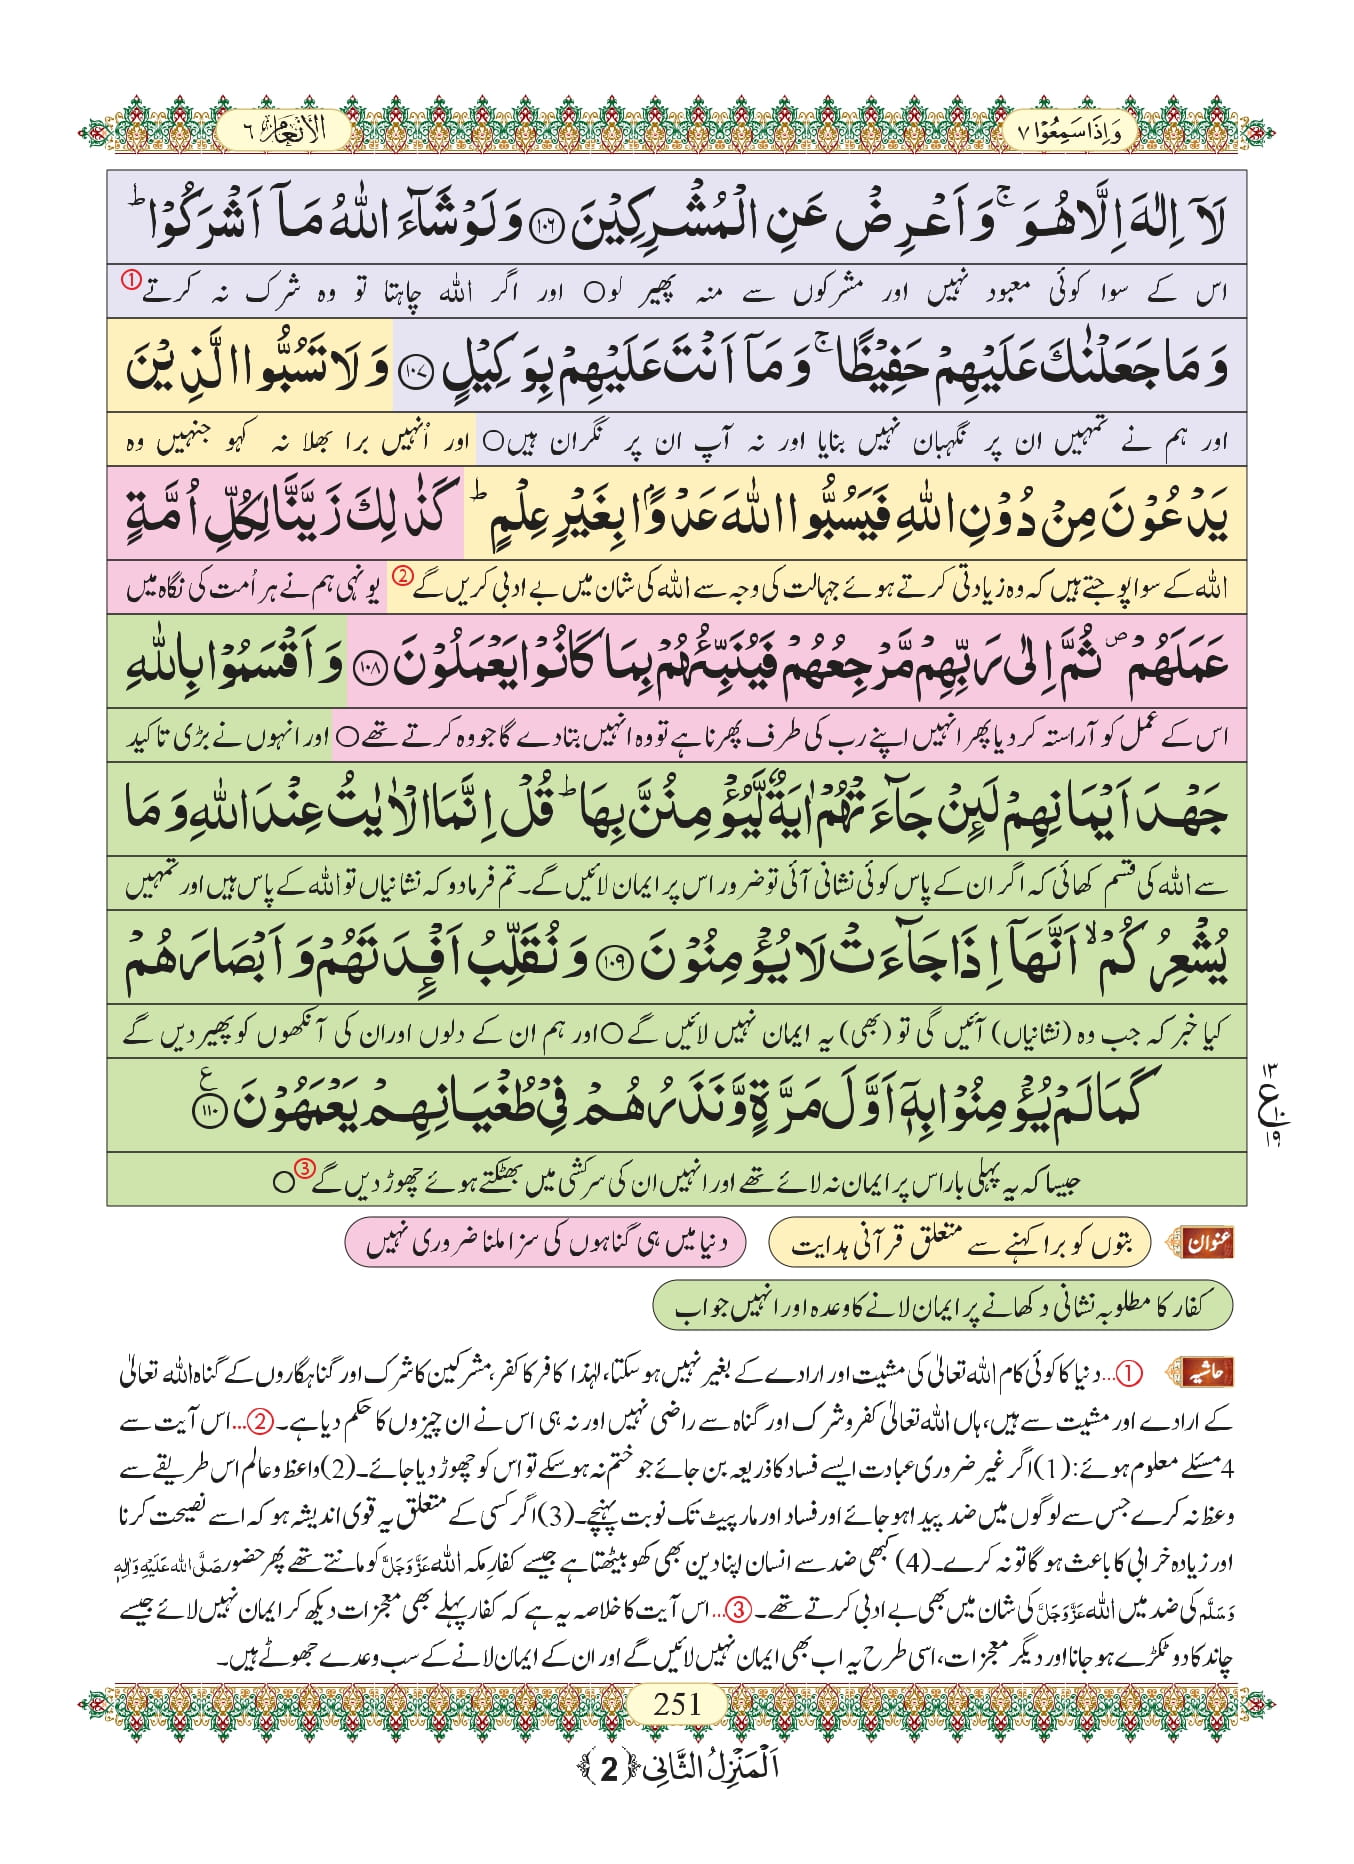 وَاِذَا سَمِعُوْا ٧
الأنعام ٦
لَاۤ اِلٰهَ اِلَّا هُوَ ۚ وَ اَعْرِضْ عَنِ الْمُشْرِكِیْنَ ﴿۱۰۶﴾ وَ لَوْ شَآءَ اللّٰهُ مَاۤ اَشْرَكُوْا ؕ
اس کے سوا کوئی معبود نہیں اور مشرکوں سے منہ پھیر لو○ اور اگر اللہ چاہتا تو وہ شرک نہ کرتے ①
وَ مَا جَعَلْنٰكَ عَلَیْهِمْ حَفِیْظًا ۚ وَ مَاۤ اَنْتَ عَلَیْهِمْ بِوَكِیْلٍ ﴿۱۰۷﴾ وَ لَا تَسُبُّوا الَّذِیْنَ
اور ہم نے تمہیں ان پر نگہبان نہیں بنایا اور نہ آپ ان پر نگران ہیں○ اور اُنہیں برا بھلا نہ کہو جنہیں وہ
یَدْعُوْنَ مِنْ دُوْنِ اللّٰهِ فَیَسُبُّوا اللّٰهَ عَدْوًۢا بِغَیْرِ عِلْمٍ ؕ كَذٰلِكَ زَیَّنَّا لِكُلِّ اُمَّةٍ
اللہ کے سوا پوجتے ہیں کہ وہ زیادتی کرتے ہوئے جہالت کی وجہ سے اللہ کی شان میں بے ادبی کریں گے ② یونہی ہم نے ہر اُمت کی نگاہ میں
عَمَلَهُمْ ۪ ثُمَّ اِلٰى رَبِّهِمْ مَّرْجِعُهُمْ فَیُنَبِّئُهُمْ بِمَا كَانُوْا یَعْمَلُوْنَ ﴿۱۰۸﴾ وَ اَقْسَمُوْا بِاللّٰهِ
اس کے عمل کو آراستہ کر دیا پھر انہیں اپنے رب کی طرف پھرنا ہے تو وہ انہیں بتادے گا جو وہ کرتے تھے○ اور انہوں نے بڑی تاکید
جَهْدَ اَیْمَانِهِمْ لَىِٕنْ جَآءَتْهُمْ اٰیَةٌ لَّیُؤْمِنُنَّ بِهَا ؕ قُلْ اِنَّمَا الْاٰیٰتُ عِنْدَ اللّٰهِ وَ مَا
سے اللہ کی قسم کھائی کہ اگر ان کے پاس کوئی نشانی آئی تو ضرور اس پر ایمان لائیں گے۔ تم فرمادو کہ نشانیاں تو اللہ کے پاس ہیں اور تمہیں
یُشْعِرُكُمْ ۙ اَنَّهَاۤ اِذَا جَآءَتْ لَا یُؤْمِنُوْنَ ﴿۱۰۹﴾ وَ نُقَلِّبُ اَفْـِٕدَتَهُمْ وَ اَبْصَارَهُمْ
کیا خبر کہ جب وہ (نشانیاں) آئیں گی تو (بھی) یہ ایمان نہیں لائیں گے○ اور ہم ان کے دلوں اور ان کی آنکھوں کو پھیر دیں گے
كَمَا لَمْ یُؤْمِنُوْا بِهٖۤ اَوَّلَ مَرَّةٍ وَّ نَذَرُهُمْ فِیْ طُغْیَانِهِمْ یَعْمَهُوْنَ ﴿۱۱۰﴾ ع
١٣ ع ١٠ ١٩
جیسا کہ یہ پہلی بار اس پر ایمان نہ لائے تھے اور انہیں ان کی سرکشی میں بھٹکتے ہوئے چھوڑ دیں گے ③○
عنوان بتوں کو برا کہنے سے متعلق قرآنی ہدایت دنیا میں ہی گناہوں کی سزا ملنا ضروری نہیں
کفار کا مطلوبہ نشانی دکھانے پر ایمان لانے کا وعدہ اور انہیں جواب
حاشیہ ①... دنیا کا کوئی کام اللہ تعالیٰ کی مشیت اور ارادے کے بغیر نہیں ہو سکتا، لہٰذا کافر کا کفر، مشرکین کا شرک اور گناہگاروں کے گناہ اللہ تعالیٰ
کے ارادے اور مشیت سے ہیں، ہاں اللہ تعالیٰ کفر و شرک اور گناہ سے راضی نہیں اور نہ ہی اس نے ان چیزوں کا حکم دیا ہے۔ ②... اس آیت سے
4 مسئلے معلوم ہوئے: (1) اگر غیر ضروری عبادت ایسے فساد کا ذریعہ بن جائے جو ختم نہ ہو سکے تو اس کو چھوڑ دیا جائے۔ (2) واعظ و عالم اس طریقے سے
وعظ نہ کرے جس سے لوگوں میں ضد پیدا ہو جائے اور فساد اور مار پیٹ تک نوبت پہنچے۔ (3) اگر کسی کے متعلق یہ قوی اندیشہ ہو کہ اسے نصیحت کرنا
اور زیادہ خرابی کا باعث ہو گا تو نہ کرے۔ (4) کبھی ضد سے انسان اپنا دین بھی کھو بیٹھتا ہے جیسے کفارِ مکہ اللہ عَزَّوَجَلَّ کو مانتے تھے پھر حضور صَلَّی اللہ عَلَیْہِ وَاٰلِہٖ
وَسَلَّم کی ضد میں اللہ عَزَّوَجَلَّ کی شان میں بھی بے ادبی کرتے تھے۔ ③... اس آیت کا خلاصہ یہ ہے کہ کفار پہلے بھی معجزات دیکھ کر ایمان نہیں لائے جیسے
چاند کا دو ٹکڑے ہو جانا اور دیگر معجزات، اسی طرح یہ اب بھی ایمان نہیں لائیں گے اور ان کے ایمان لانے کے سب وعدے جھوٹے ہیں۔
251
اَلْمَنْزِلُ الثَّانِی ﴿2﴾